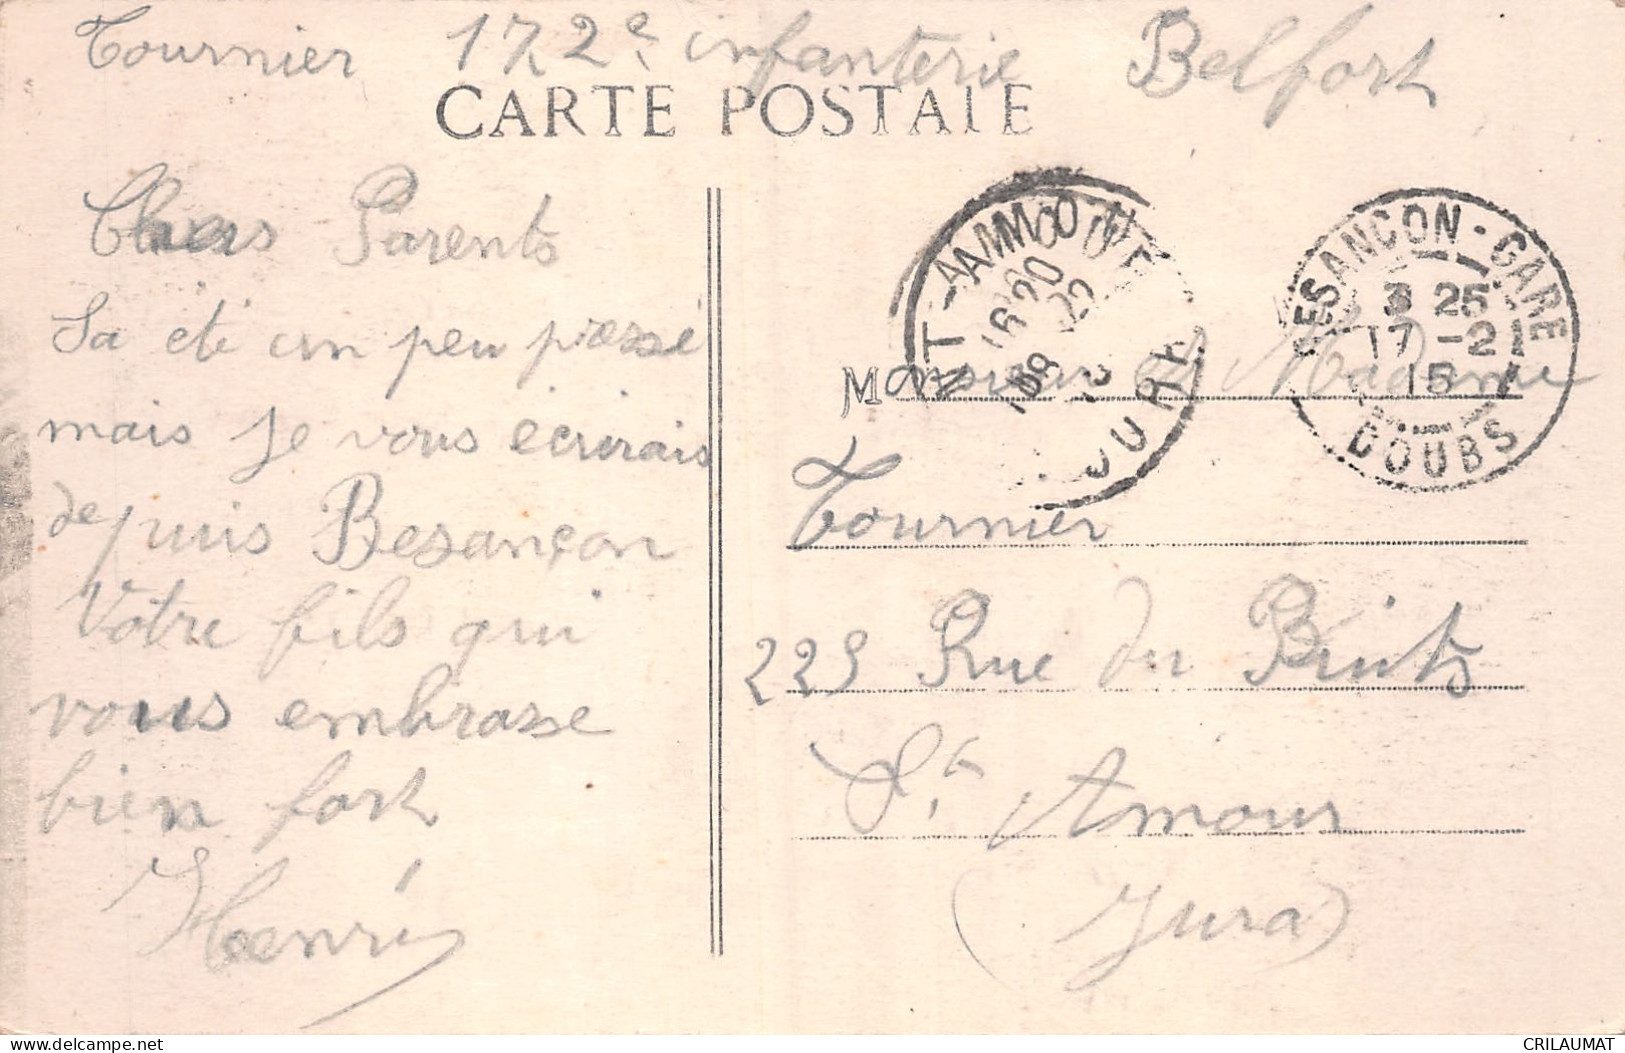 Tournier 172e infanterie Belfort
CARTE POSTALE
Chers Parents
Sa été un peu pressé
mais je vous écrirais
depuis Besançon
Votre fils qui
vous embrasse
bien fort
Henri
BESANCON-GARE
3 25
17-2
15
DOUBS
Monsieur et Madame
Tournier
225 Rue du Puits
St Amour
(Jura)
CRILAUMAT